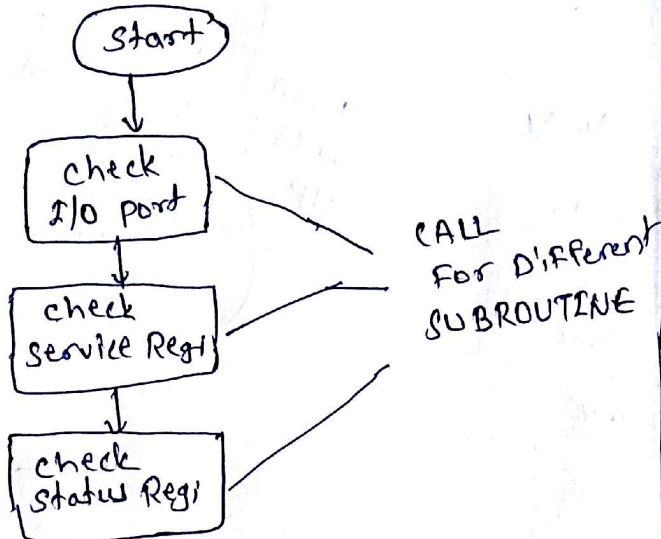 Start
check
I/O port
check
Service Regi
check
Status Regi
CALL
For Different
SUBROUTINE